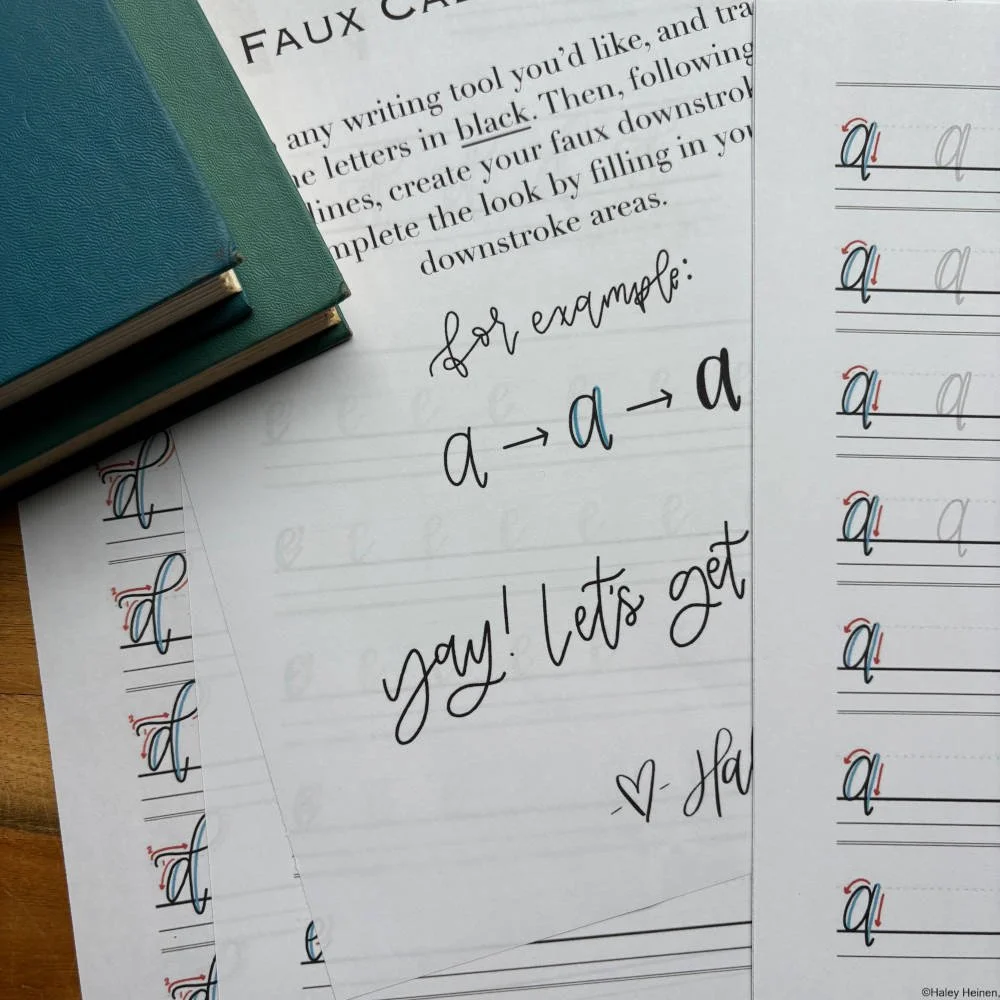 FAUX
any writing tool you'd like, and
letters in black. Then, following
lines, create your faux
the look by filling in
downstroke areas.
for example:
a → a → a
yay! let's get
♡ -
a a
a a
a a
a a
a
a
a
d
d
d
d
t
©Haley Heinen,